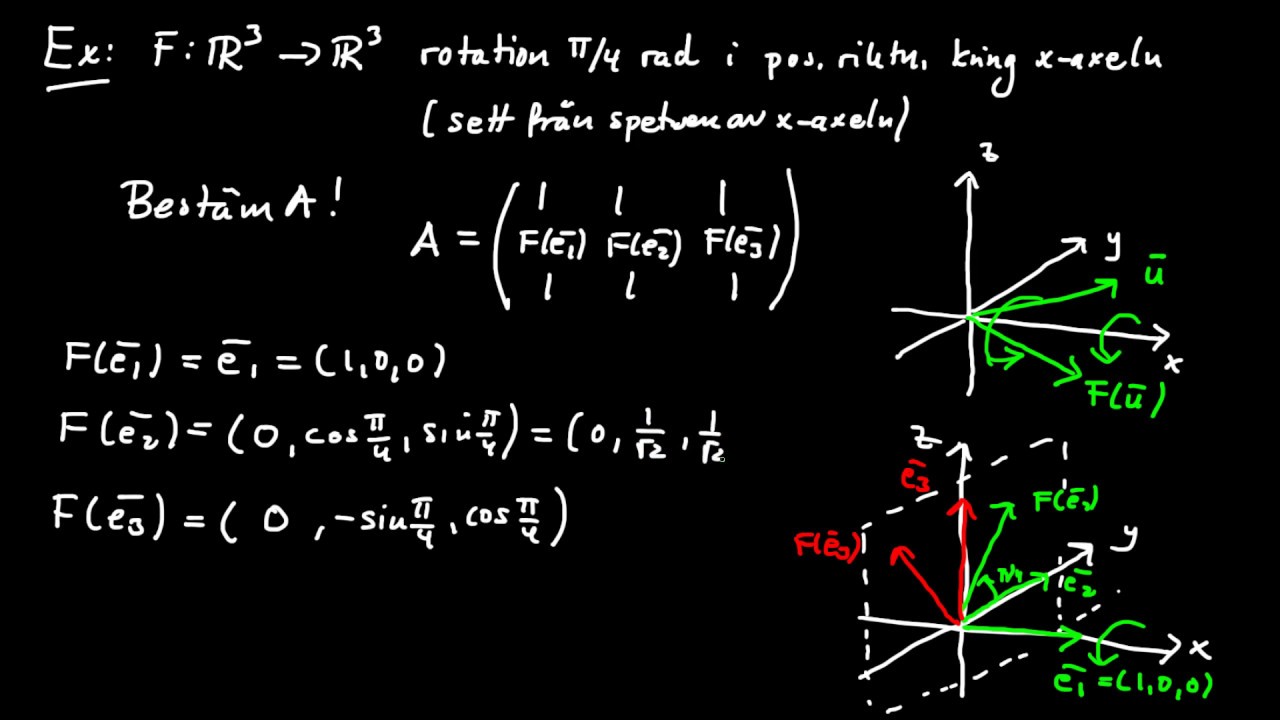 Ex: F: ℝ³ → ℝ³ rotation π/4 rad i pos. riktn. kring x-axeln
(sett från spetsen av x-axeln)
Bestäm A!
A = ( | | |
F(ē₁) F(ē₂) F(ē₃)
| | | )
z
y
ū
x
F(ū)
F(ē₁) = ē₁ = (1,0,0)
F(ē₂) = (0, cos π/4, sin π/4) = (0, 1/√2, 1/√2
F(ē₃) = (0, -sin π/4, cos π/4)
z
ē₃
F(ē₂)
F(ē₃)
y
π/4
ē₂
x
ē₁ = (1,0,0)